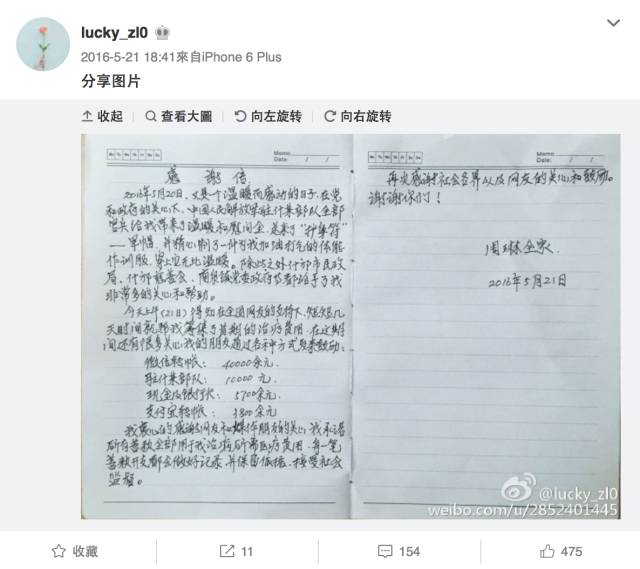 lucky_zl0
2016-5-21 18:41來自iPhone 6 Plus
分享图片
收起 查看大圖 向左旋转 向右旋转
Memo
Date: / /
感 谢 信
2016年5月20日，又是一个温暖而感动的日子，在党
和政府的关心下，中国人民解放军驻什某部队全部
官兵给我带来了温暖和慰问金，送来了“护身符”
——军帽，并精心制了一件为我加油打气的体能
作训服，穿上它无比温暖。除此之外什邡市民政
局、什邡慈善会，南泉镇党委政府等都给予了我
非常多的关心和帮助。
今天上午（21日）得知在全国网友的支持下，短短几
天时间就帮我筹集了首期的治疗费用，在这期
间还有很多关心我的朋友通过各种方式为我鼓劲：
微信转帐： 40000余元
驻什某部队： 10000元
现金及银行伏： 5700余元
支付宝转帐： 3800余元
我衷心的感谢网友和朋友的关心，我承诺
所有善款全部用于我治疗所需医疗费用，每一笔
善款开支都会做好记录，并保留依据，接受社会
监督。
Memo
Date: / /
再次感谢社会各界以及网友的关心和鼓励。
谢谢你们！
周琳全家
2016年5月21日
@lucky_zl0
weibo.com/u/2852401445
收藏 11 154 475